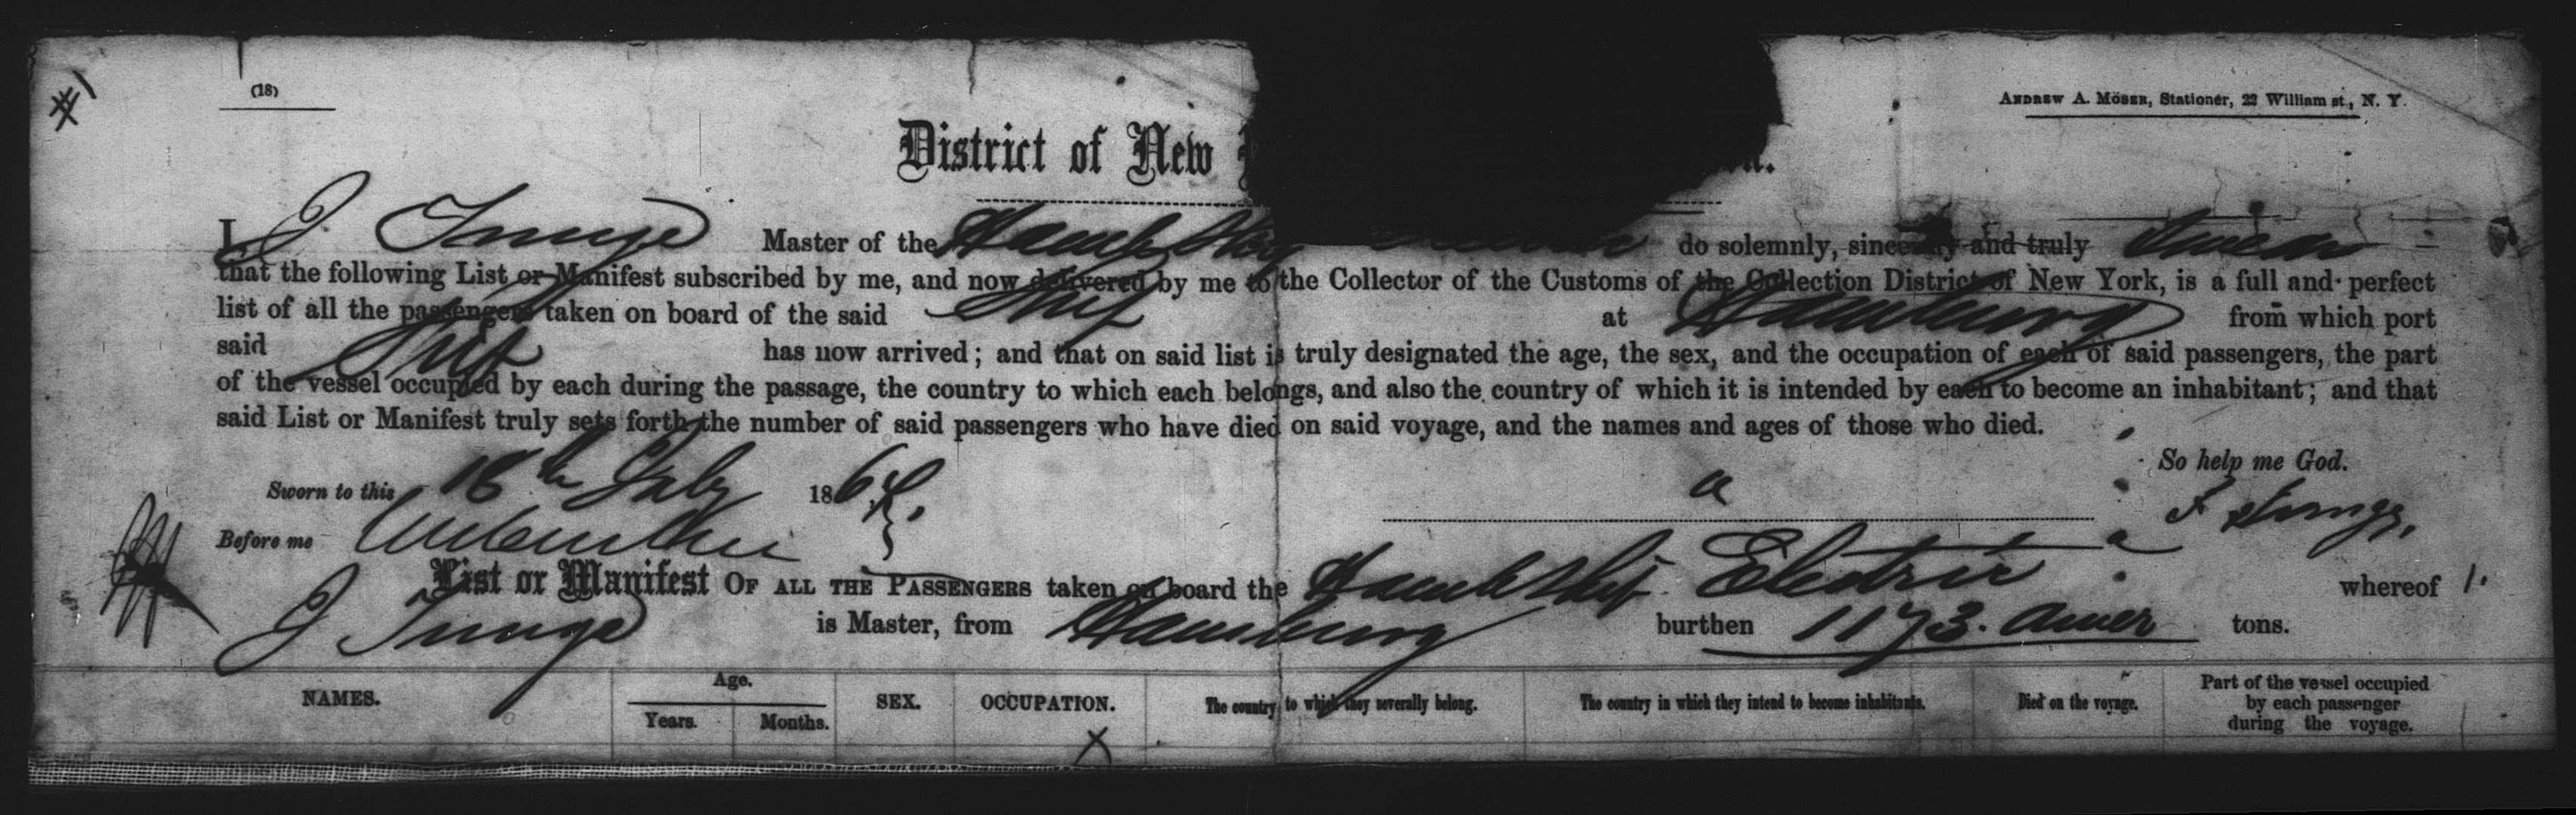 #1
(18)
Andrew A. Möser, Stationer, 22 William st., N. Y.
District of New
I J. Junge Master of the Hamb Ship do solemnly, sincerely and truly Swear
that the following List or Manifest subscribed by me, and now delivered by me to the Collector of the Customs of the Collection District of New York, is a full and perfect
list of all the passengers taken on board of the said Ship at Hamburg from which port
said Ship has now arrived; and that on said list is truly designated the age, the sex, and the occupation of each of said passengers, the part
of the vessel occupied by each during the passage, the country to which each belongs, and also the country of which it is intended by each to become an inhabitant; and that
said List or Manifest truly sets forth the number of said passengers who have died on said voyage, and the names and ages of those who died.
So help me God.
Sworn to this 18th July 186
J Junge,
Before me
List or Manifest OF ALL THE PASSENGERS taken on board the Hamb Ship Electric whereof
J Junge is Master, from Hamburg burthen 1173. Amer tons.
NAMES. Age. Years. Months. SEX. OCCUPATION. The country to which they severally belong. The country in which they intend to become inhabitants. Died on the voyage. Part of the vessel occupied by each passenger during the voyage.
X